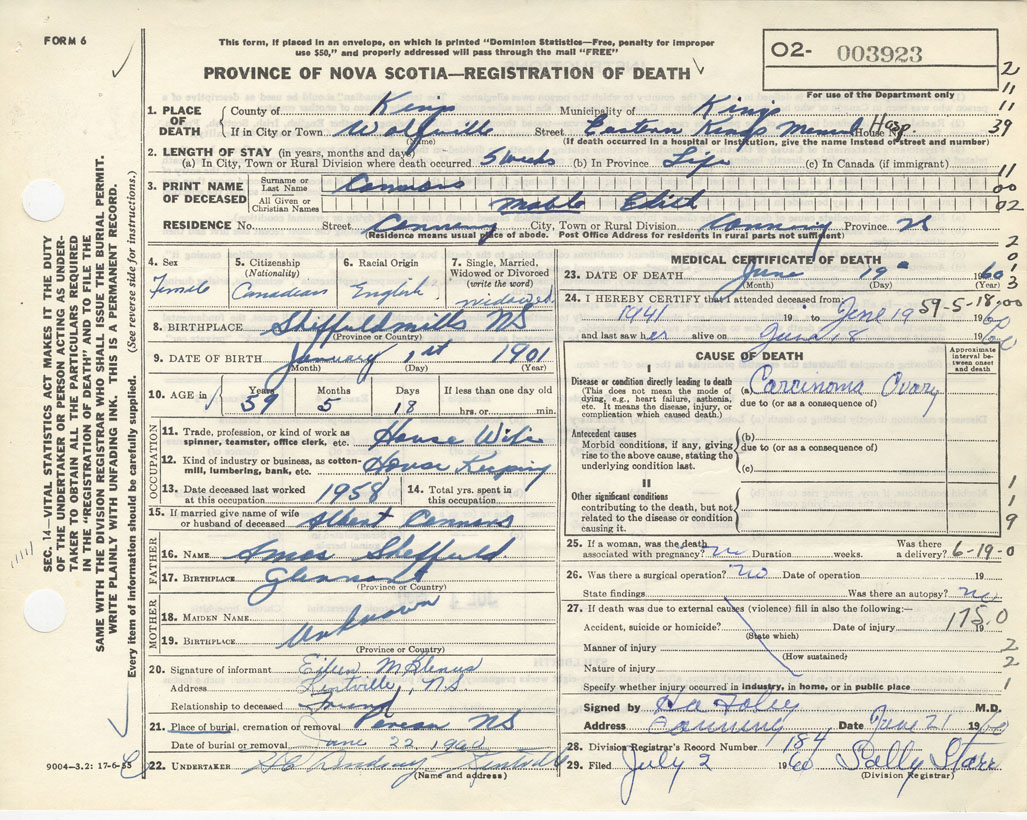 FORM 6
This form, if placed in an envelope, on which is printed "Dominion Statistics—Free, penalty for improper
use $50," and properly addressed will pass through the mail "FREE"
O2- 003923
For use of the Department only
PROVINCE OF NOVA SCOTIA—REGISTRATION OF DEATH
1. PLACE OF DEATH County of Kings Municipality of Kings
If in City or Town Wolfville Street Eastern Kings Memorial House No. Hosp.
(Name) (If death occurred in a hospital or institution, give the name instead of street and number)
2. LENGTH OF STAY (in years, months and days)
(a) In City, Town or Rural Division where death occurred 5 weeks (b) In Province Life (c) In Canada (if immigrant)
3. PRINT NAME OF DECEASED Surname or Last Name Connors
All Given or Christian Names Mable Edith
RESIDENCE No. Street Canning City, Town or Rural Division Canning Province NS
(Residence means usual place of abode. Post Office Address for residents in rural parts not sufficient)
4. Sex Female
5. Citizenship (Nationality) Canadian
6. Racial Origin English
7. Single, Married, Widowed or Divorced (write the word) widowed
8. BIRTHPLACE Sheffield mills NS
(Province or Country)
9. DATE OF BIRTH January 1st 1901
(Month) (Day) (Year)
10. AGE in Years 59 Months 5 Days 18 If less than one day old hrs. or min.
OCCUPATION
11. Trade, profession, or kind of work as spinner, teamster, office clerk, etc. House Wife
12. Kind of industry or business, as cotton-mill, lumbering, bank, etc. House Keeping
13. Date deceased last worked at this occupation 1958 14. Total yrs. spent in this occupation
15. If married give name of wife or husband of deceased Albert Connors
FATHER
16. NAME Amos Sheffield
17. BIRTHPLACE
(Province or Country)
MOTHER
18. MAIDEN NAME Unknown
19. BIRTHPLACE
(Province or Country)
20. Signature of informant Eileen
Address Kentville, N.S.
Relationship to deceased Friend
21. Place of burial, cremation or removal NS
Date of burial or removal June 22 1960
22. UNDERTAKER Lindsay Kentville
(Name and address)
9004—3.2: 17-6-55
MEDICAL CERTIFICATE OF DEATH
23. DATE OF DEATH June 19 1960
(Month) (Day) (Year)
24. I HEREBY CERTIFY that I attended deceased from: 59-5-18,00
1941 19 to June 19 1960
and last saw her alive on June 18 1960
CAUSE OF DEATH
Approximate interval between onset and death
I
Disease or condition directly leading to death
(This does not mean the mode of dying, e.g., heart failure, asthenia, etc. It means the disease, injury, or complication which caused death.)
(a) Carcinoma Ovary
due to (or as a consequence of)
Antecedent causes
Morbid conditions, if any, giving rise to the above cause, stating the underlying condition last.
(b)
due to (or as a consequence of)
(c)
II
Other significant conditions contributing to the death, but not related to the disease or condition causing it.
25. If a woman, was the death associated with pregnancy? no Duration weeks. Was there a delivery? 6-19-0
26. Was there a surgical operation? no Date of operation 19
State findings Was there an autopsy? no
27. If death was due to external causes (violence) fill in also the following:—
Accident, suicide or homicide? Date of injury 19 175.0
(State which)
Manner of injury
(How sustained)
Nature of injury
Specify whether injury occurred in industry, in home, or in public place
Signed by Foley M.D.
Address Canning Date June 21 1960
28. Division Registrar's Record Number 184
29. Filed July 2 1960 Sally Starr
(Division Registrar)
2
11
11
39
11
00
02
2
0
0
3
1
1
9
2
2
1
SEC. 14—VITAL STATISTICS ACT MAKES IT THE DUTY
OF THE UNDERTAKER OR PERSON ACTING AS UNDER-
TAKER TO OBTAIN ALL THE PARTICULARS REQUIRED
IN THE "REGISTRATION OF DEATH" AND TO FILE THE
SAME WITH THE DIVISION REGISTRAR WHO SHALL ISSUE THE BURIAL PERMIT.
WRITE PLAINLY WITH UNFADING INK. THIS IS A PERMANENT RECORD.
Every item of information should be carefully supplied. (See reverse side for instructions.)